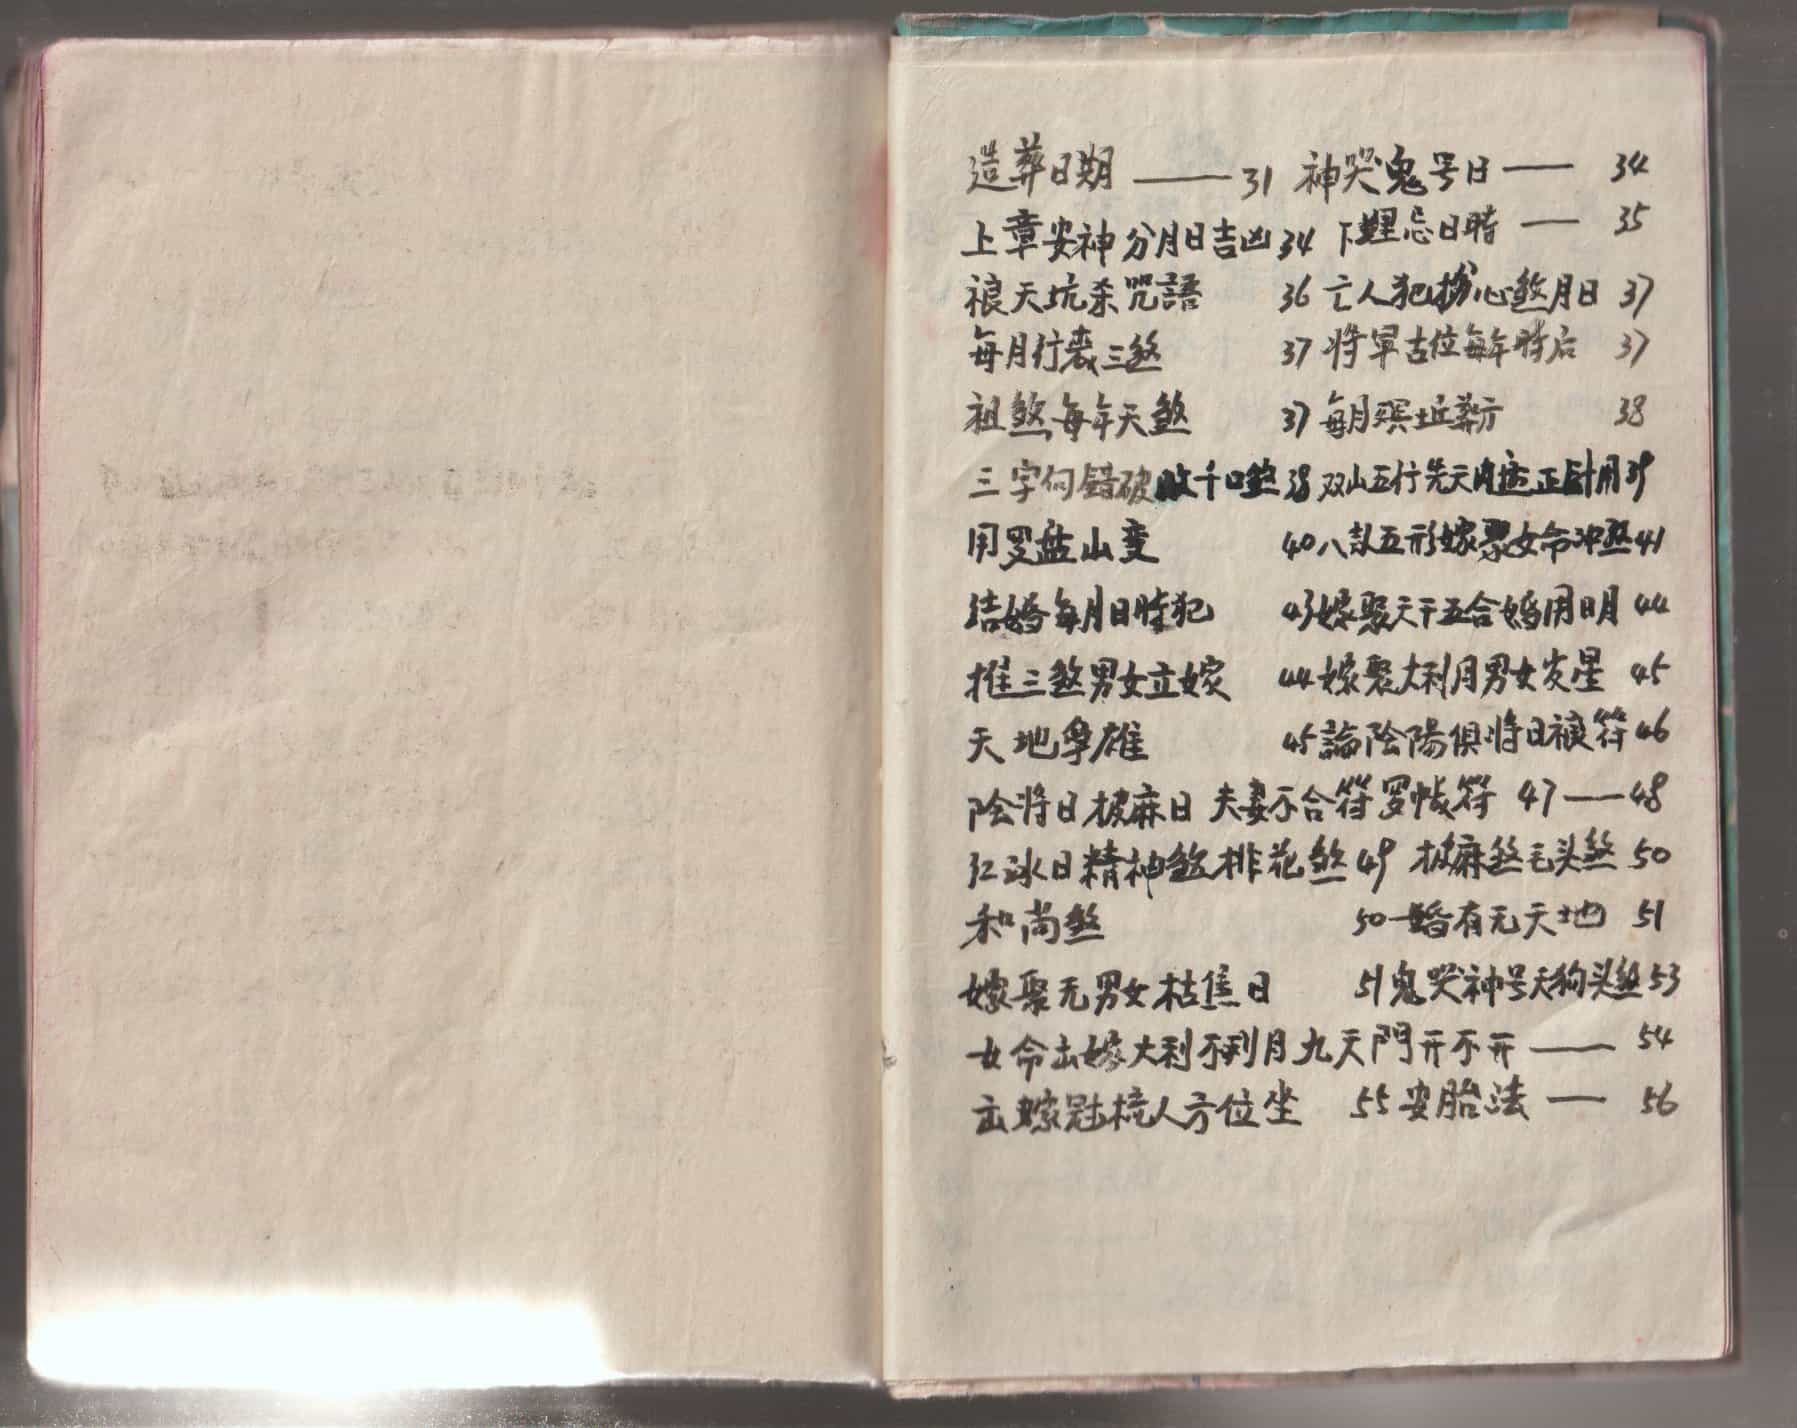 造葬日期 —— 31 神哭鬼号日 —— 34
上章安神分月日吉凶 34 下 忌日時 — 35
天坑杀咒語 36 亡人犯 心煞月日 37
每月行喪三煞 37 将军占位每年時后 37
祖煞每年天煞 37 每月 方 38
三字向錯破敗千口煞 38 双山五行先天内 正針用 39
用罗盘山变 40 八卦五形嫁娶女命冲煞 41
结婚每月日時犯 43 嫁娶天干五合婚用日月 44
推三煞男女立嫁 44 嫁娶大利月男女发星 45
天地争雄 45 論陰陽俱将日 符 46
陰将日披麻日 夫妻不合符罗帳符 47——48
红冰日精神煞排花煞 49 披麻煞毛头煞 50
和尚煞 50 一婚有无天地 51
嫁娶无男女枯焦日 51 鬼哭神号天狗头煞 53
女命出嫁大利不利月九天門开不开 —— 54
出嫁冠梳人方位坐 55 安胎法 — 56